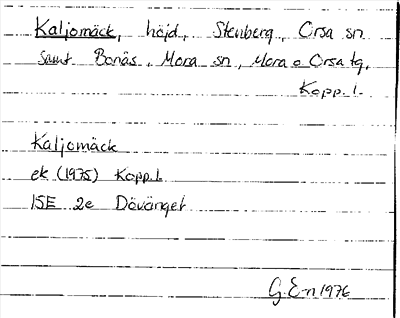 Kaljomäck, höjd, Stenberg, Orsa sn
samt Bonäs, Mora sn, Mora o Orsa tg,
Kopp. l.
Kaljomäck
ek (1975) Kopp.l.
15E 2e Dövänget
G.E-n 1976